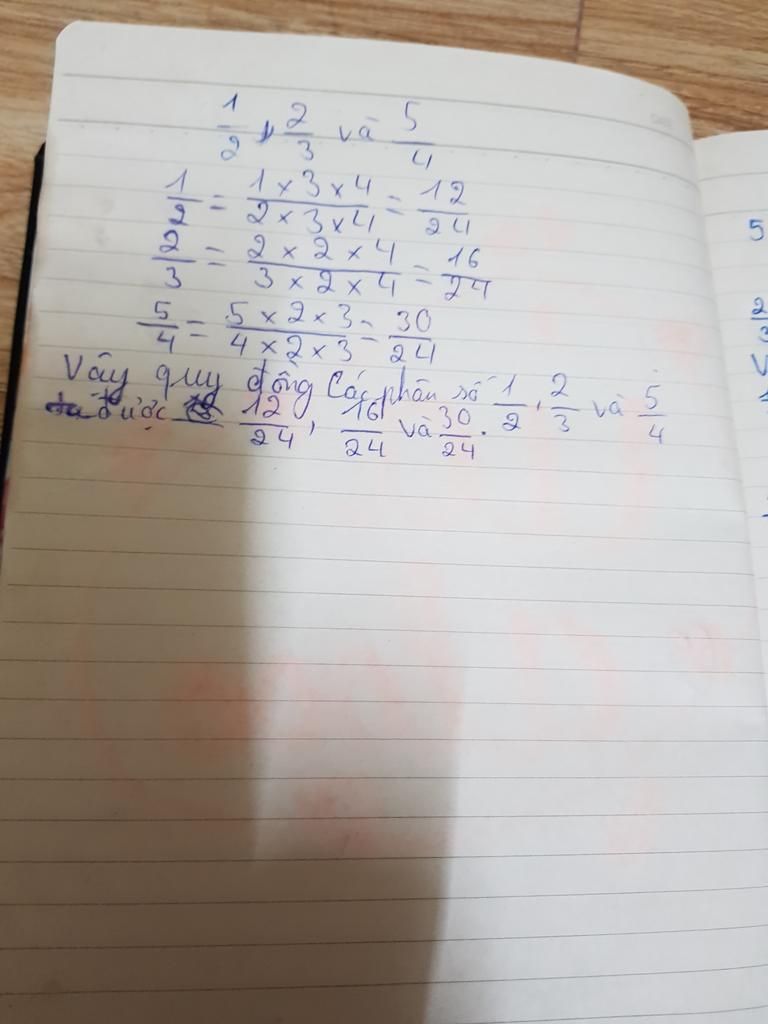 1/2, 2/3 và 5/4
1/2 = 1 × 3 × 4 / 2 × 3 × 4 = 12/24
2/3 = 2 × 2 × 4 / 3 × 2 × 4 = 16/24
5/4 = 5 × 2 × 3 / 4 × 2 × 3 = 30/24
Vậy quy đồng các phân số 1/2, 2/3 và 5/4
được 12/24, 16/24 và 30/24.
5
2/3